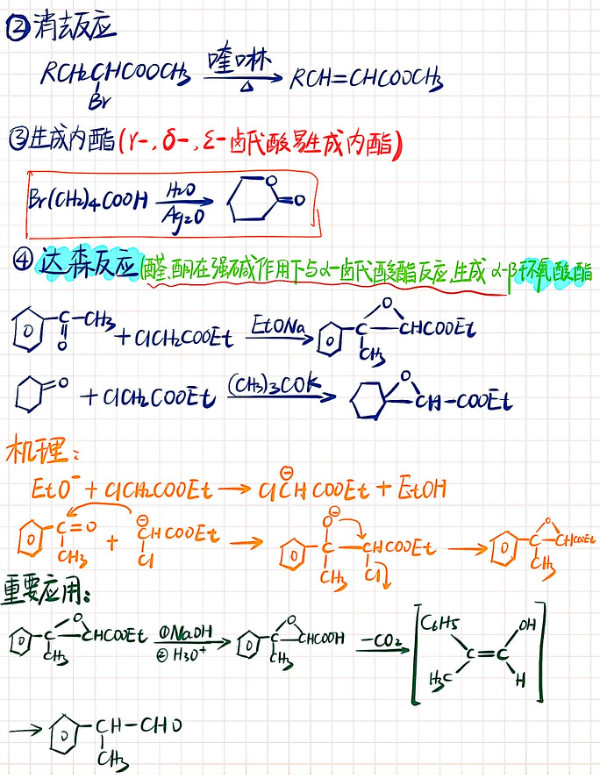 ②消去反应
RCH₂CHCOOCH₃ 喹啉 △ → RCH=CHCOOCH₃
Br
③生成内酯(γ-,δ-,ε-卤代酸易生成内酯)
Br(CH₂)₄COOH H₂O Ag₂O → O =O
④达森反应(醛.酮在强碱作用下与α-卤代酸酯反应生成α-β环氧酸酯
C-CH₃ O + ClCH₂COOEt EtONa → C O CHCOOEt CH₃
=O + ClCH₂COOEt (CH₃)₃COK → O CH-COOEt
机理:
EtO⁻ + ClCH₂COOEt → Cl⊖CHCOOEt + EtOH
C=O CH₃ + ⊖CHCOOEt Cl → O⊖ C-CHCOOEt CH₃ Cl → C O CHCOOEt CH₃
重要应用:
C O CHCOOEt CH₃ ①NaOH ②H₃O⁺ → C O CHCOOH CH₃ -CO₂ → [C₆H₅ OH C=C H₃C H]
→ CH-CHO
CH₃